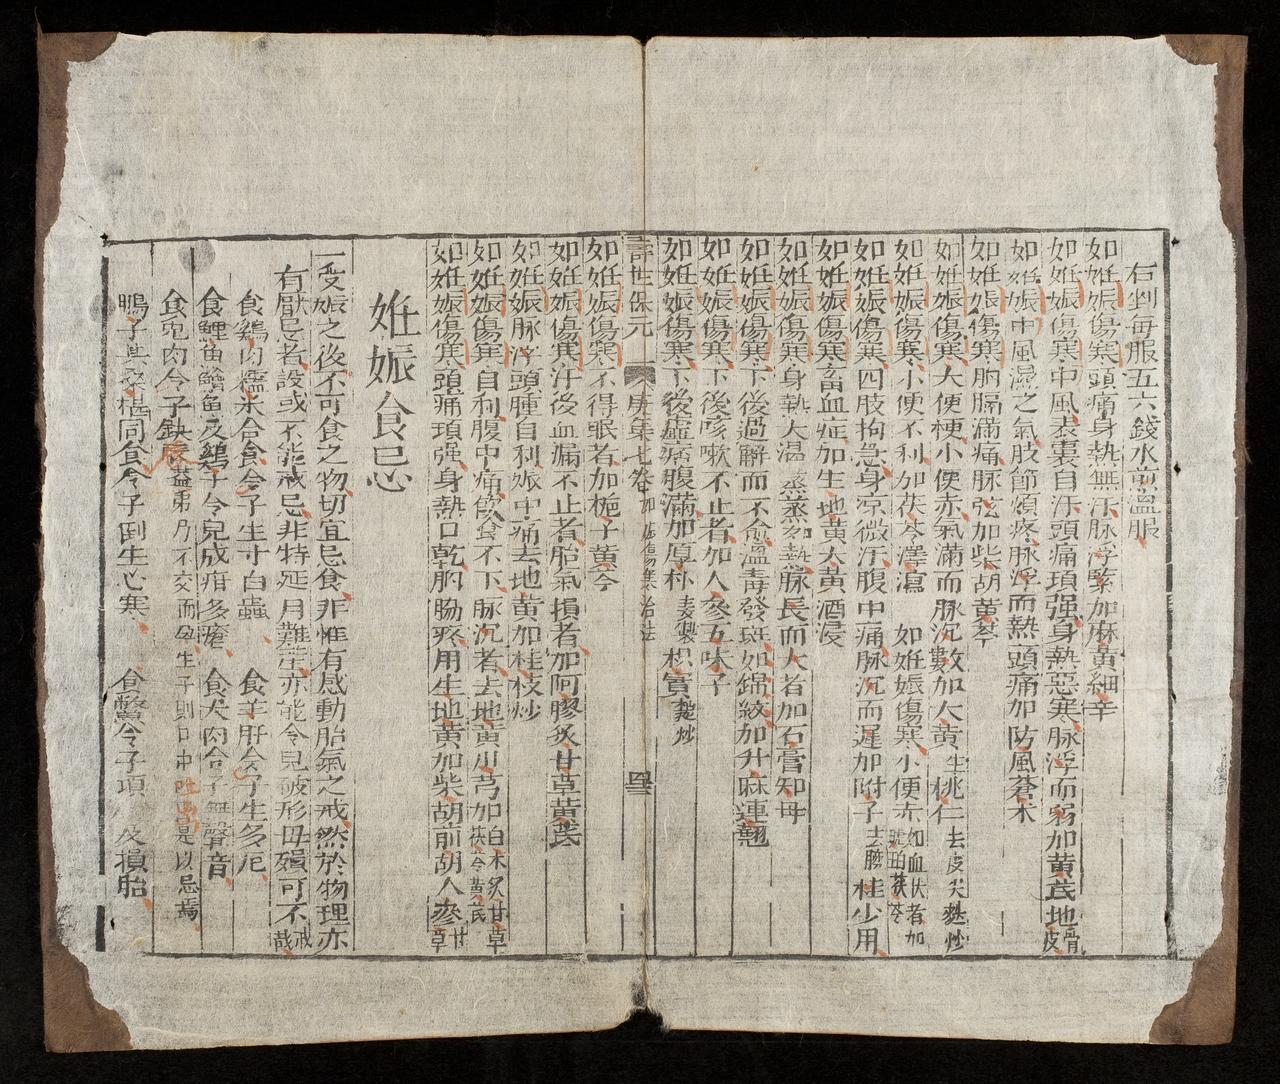 右剉每服五六錢水煎溫服
如姙娠傷寒頭痛身熱無汗脉浮緊加麻黃細辛
如姙娠傷寒中風表裏自汗頭痛項强身熱惡寒脉浮而弱加黃芪地骨皮
如姙娠中風濕之氣肢節煩疼脉浮而熱頭痛加防風蒼朮
如姙娠傷寒胷膈滿痛脉弦加柴胡黃芩
如姙娠傷寒大便梗小便赤氣滿而脉沉數加大黃桃仁去皮尖麩炒
如姙娠傷寒小便不利加茯苓澤瀉 如姙娠傷寒小便赤如血伏者加琥珀茯苓
如姙娠傷寒四肢拘急身凉微汗腹中痛脉沉而遲加附子去臍桂少用
如姙娠傷寒畜血症加生地黃大黃酒浸
如姙娠傷寒身熱大渴蒸蒸勿熱脉長而大者加石膏知母
如姙娠傷寒下後過觧而不愈溫毒發斑如錦紋加升麻連翹
如姙娠傷寒下後咳嗽不止者加人參五味子
如姙娠傷寒下後虛痞腹滿加厚朴姜製枳實麩炒
壽世保元 庚集七卷 加減傷寒治法
如姙娠傷寒不得眠者加梔子黃芩
如姙娠傷寒汗後血漏不止者胎氣損者加阿膠炙甘草黃芪
如姙娠脉浮頭腫自利娠中痛去地黃加桂枝炒
如姙娠傷寒自利腹中痛飲食不下脉沉者去地黃川芎加白朮炙甘草茯苓黃芪
如姙娠傷寒頭痛項强身熱口乾胷脇疼用生地黃加柴胡前胡人參甘草
姙娠食忌
一受娠之後不可食之物切宜忌食非惟有感動胎氣之戒然於物理亦
有厭忌者設或不能戒忌非特延月難產亦能令兒破形母殞可不戒哉
食鷄肉糯米合食令子生寸白蟲 食羊肝令子生多厄
食鯉魚鱠魚及鷄子令兒成疳多瘡 食犬肉令子無聲音
食兎肉令子缺唇益弟乃不交而孕生子則口中吐出是以忌焉
鴨子與桑椹同食令子倒生心寒 食鱉令子項及損胎